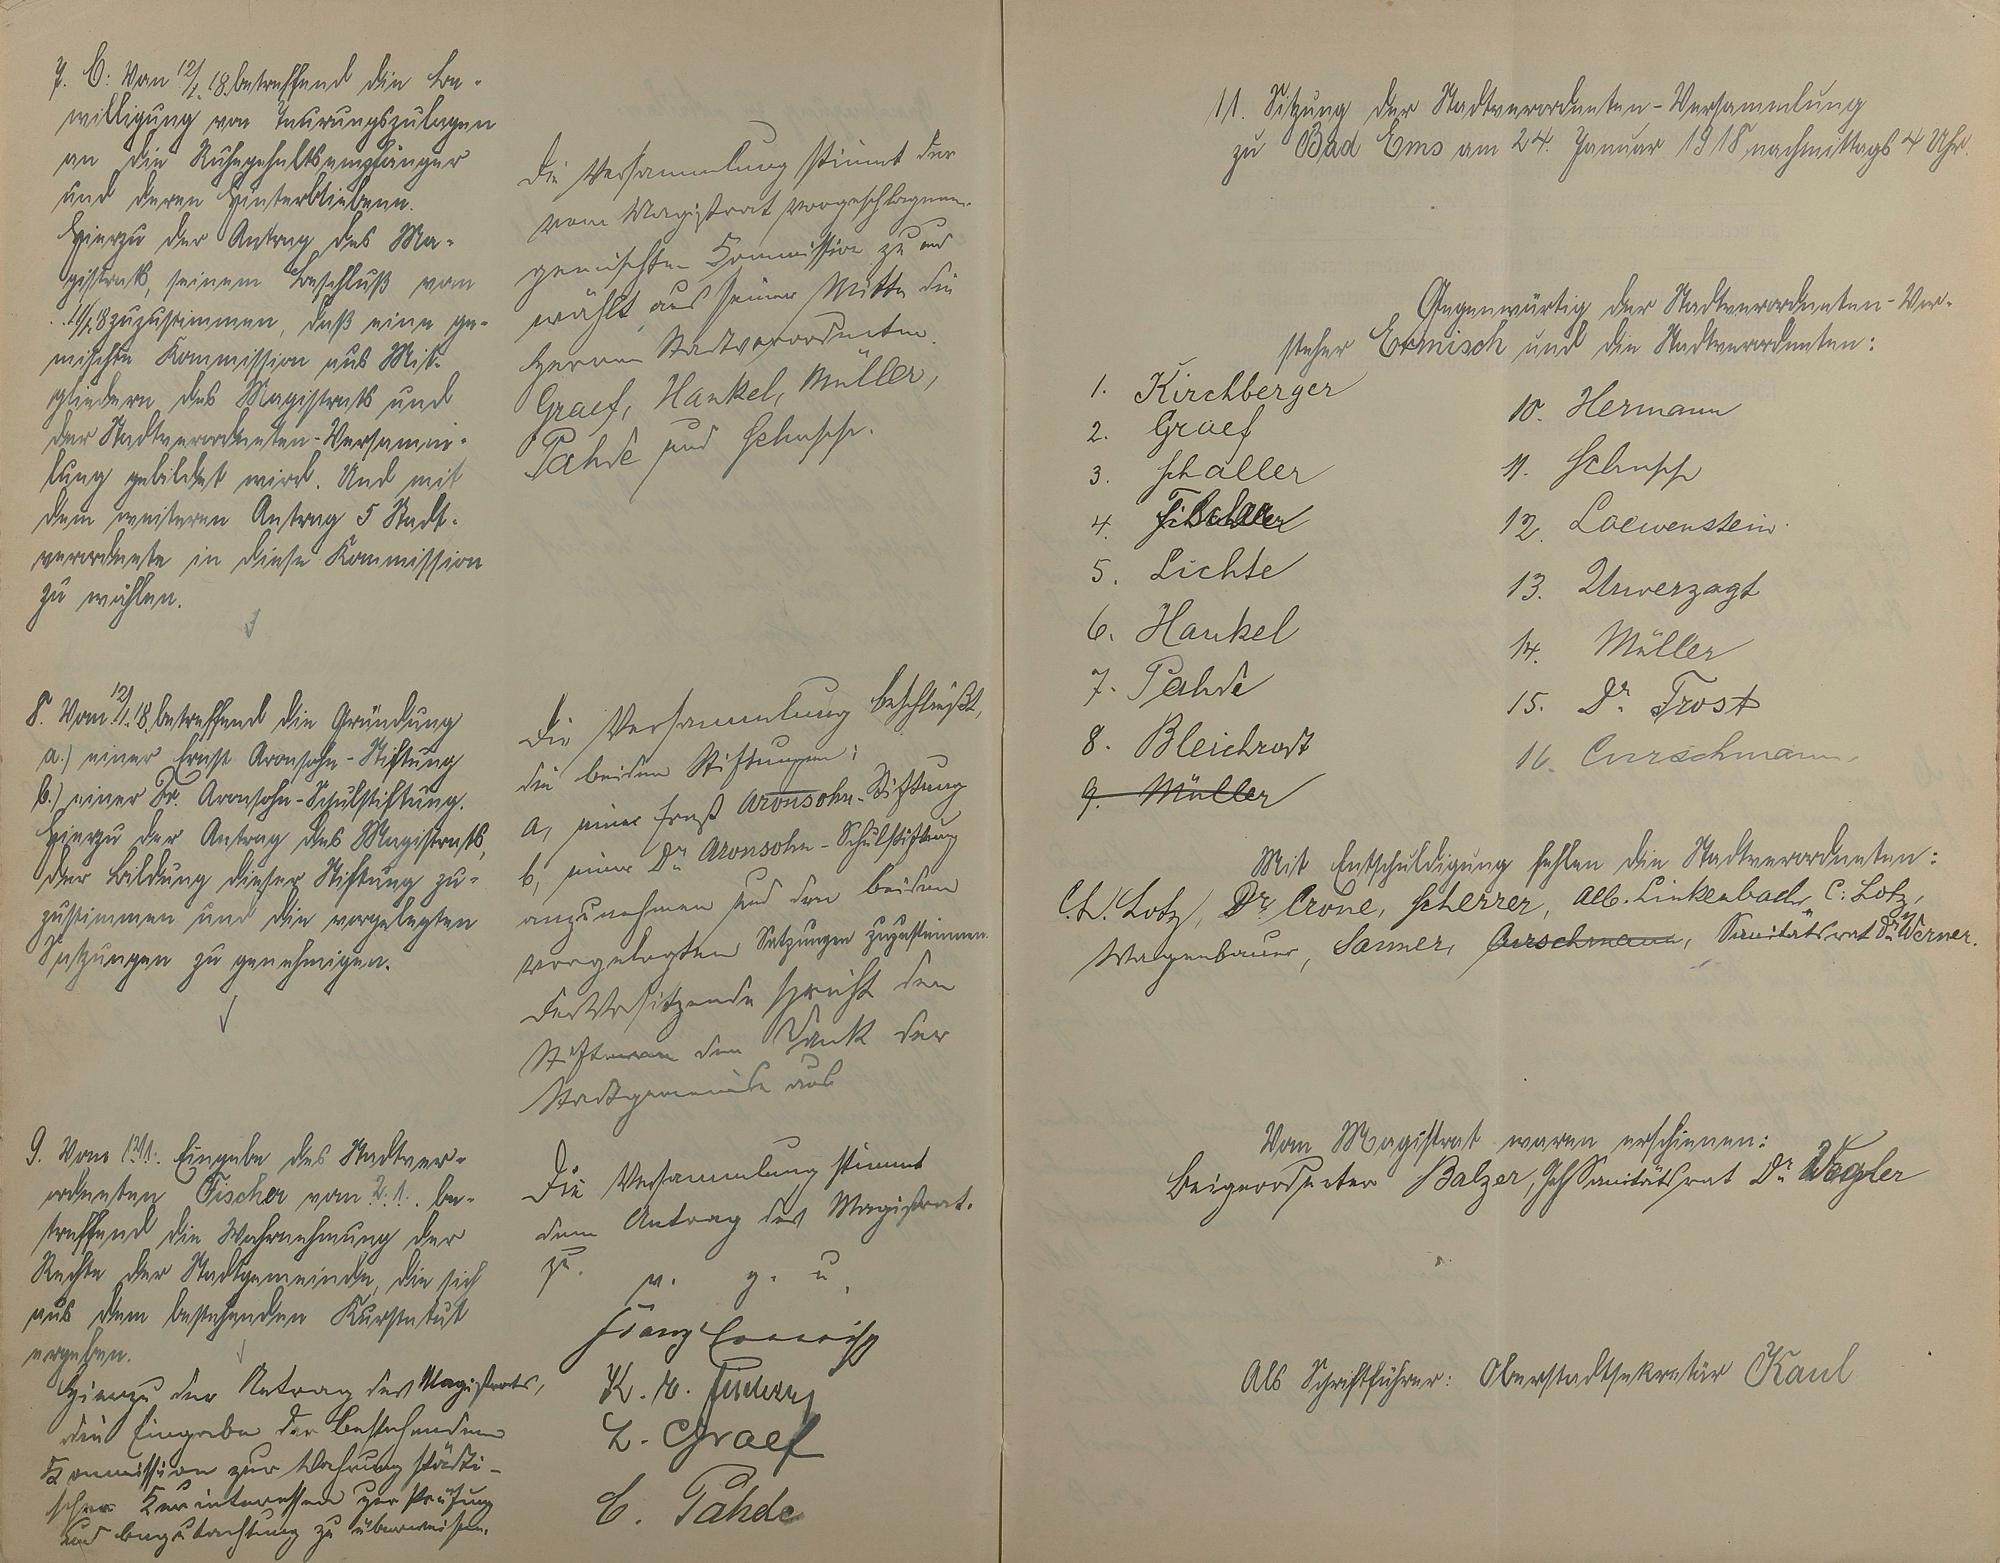 7. C: Vom 12/1. 18. betreffend die Be-
willigung von Teurungszulagen
an die Ruhegehaltsempfänger
und deren Hinterbliebene.
Hierzu der Antrag des Ma-
gistrats, seinem Beschluß vom
11/1. 18 zuzustimmen, daß eine ge-
mischte Kommission aus Mit-
gliedern des Magistrats und
der Stadtverordneten-Versamm-
lung gebildet wird. Und mit
dem weiteren Antrag 5 Stadt-
verordnete in diese Kommission
zu wählen.
Die Versammlung stimmt der
vom Magistrat vorgeschlagenen
gemischten Kommission zu und
wählt aus seiner Mitte die
Herren Stadtverordneten
Graef, Hankel, Müller,
Pahde und Schupp.
8. Vom 12/1. 18. betreffend die Gründung
a.) einer Ernst Aronsohn-Stiftung
b.) einer Dr. Aronsohn-Schulstiftung.
Hierzu der Antrag des Magistrats,
der Bildung dieser Stiftung zu-
zustimmen und die vorgelegten
Satzungen zu genehmigen.
Die Versammlung beschließt,
die beiden Stiftungen:
a, einer Ernst Aronsohn-Stiftung
b, einer Dr. Aronsohn-Schulstiftung
anzunehmen und den beiden
vorgelegten Satzungen zuzustimmen.
Der Vorsitzende spricht den
Stiftern den Dank der
Stadtgemeinde aus
9. Vom 12/1. Eingabe des Stadtver-
ordneten Fischer vom 2.1. be-
treffend die Wahrnehmung der
Rechte der Stadtgemeinde, die sich
aus dem bestehenden Kurstatut
ergeben.
Hierzu der Antrag des Magistrats,
die Eingabe der bestehenden
Kommission zur Wahrung städti-
scher Kurinteressen zur Prüfung
und Begutachtung zu überweisen.
Die Versammlung stimmt
dem Antrag des Magistrat.
zu.
v. g. u.
Franz Ermisch
L. Graef
C. Pahde
11. Sitzung der Stadtverordneten-Versammlung
zu Bad Ems am 24. Januar 1918 nachmittags 4 Uhr.
Gegenwärtig der Stadtverordneten-Vor-
steher Ermisch und die Stadtverordneten:
1. Kirchberger
2. Graef
3. Schaller
4.
5. Lichte
6. Hankel
7. Pahde
8. Bleichrodt
9. Müller
10. Hermann
11. Schupp
12. Loewenstein
13. Unverzagt
14. Müller
15. Dr. Trost
16. Curschmann.
Mit Entschuldigung fehlen die Stadtverordneten:
Ch. Lotz, Dr. Crone, Scherrer, Alb. Linkenbach, C. Lotz,
Wagenbauer, Sanner, Curschmann, Sanitätsrat Dr. Werner.
Vom Magistrat waren erschienen:
Beigeordneter Balzer, Geh Sanitätsrat Dr.
Als Schriftführer: Oberstadtsekretär Kaul